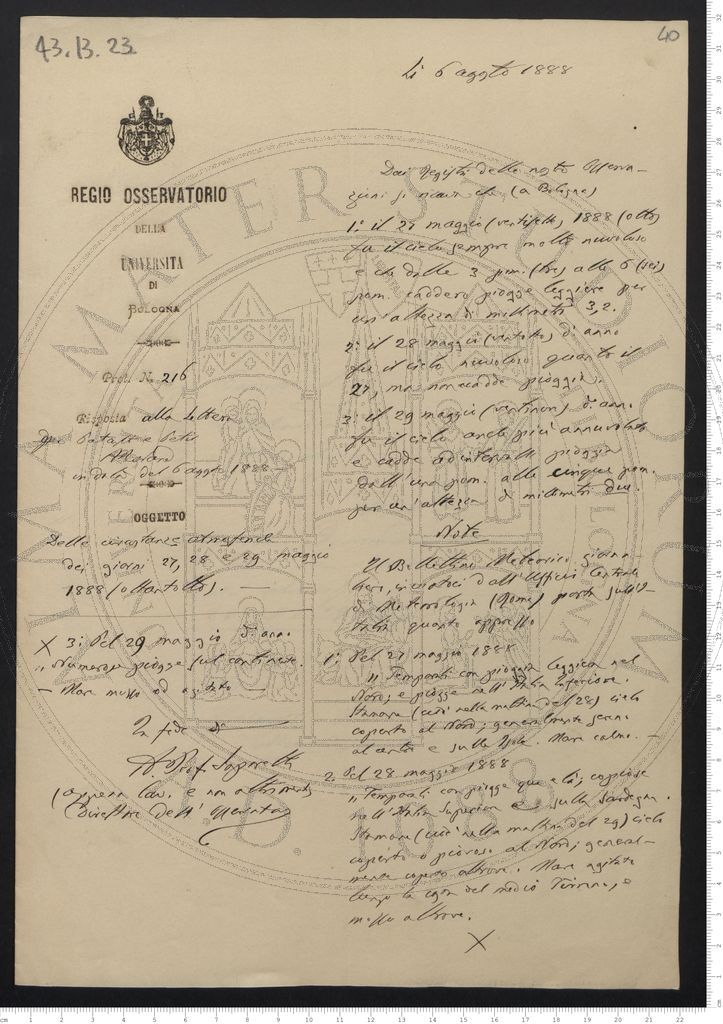 43. B. 23.
40
Li 6 agosto 1888
REGIO OSSERVATORIO
DELLA
UNIVERSITÀ
DI
BOLOGNA
Prot. N. 216
Risposta alla lettera
in data del 6 agosto 1888
OGGETTO
Delle circostanze atmosferiche
dei giorni 27, 28 e 29 maggio
1888 (ottantotto).
Dai Registri delle nostre Osserva-
zioni si ricava che (a Bologna)
1: il 27 maggio (ventisette) 1888 (otto)
fu il cielo sempre molto nuvoloso
e che dalle 3 pom. (tre) alle 6 (sei)
pom. caddero piogge leggiere per
un'altezza di millimetri 3,2.
2: il 28 maggio (ventotto) d: anno
fu il cielo nuvoloso quanto il
27, ma non cadde pioggia.
3: il 29 maggio (ventinove) d: anno
fu il cielo anche più annuvolato
e cadde ad intervalli pioggia
dall'una pom. alle cinque pom.
per un'altezza di millimetri due.
Note
Il Bollettino Meteorico giorna-
liero, inviatoci dall'Ufficio Centrale
di Meteorologia (Roma) porta sull'I-
talia quanto appresso
1: Pel 27 maggio 1888
" Temporali con pioggia leggiera nel
Nord; e piogge nell'Italia Inferiore.
Stamane (cioè nella mattina del 28) cielo
coperto al Nord; generalmente sereno
al centro e sulle Isole. Mare calmo. —
2. Pel 28 maggio 1888
" Temporali con piogge qua e là; copiose
nell'Italia Superiore e sulla Sardegna.
Stamane (cioè nella mattina del 29) cielo
coperto o piovoso al Nord; general-
mente coperto altrove. Mare agitato
lungo la costa del medio Tirreno, e
mosso altrove.
X
X 3: Pel 29 maggio d: anno
" Numerose piogge sul continente.
— Mare mosso ed agitato —
In fede di
A. Prof. Saporetti
Direttore dell' Osservatorio